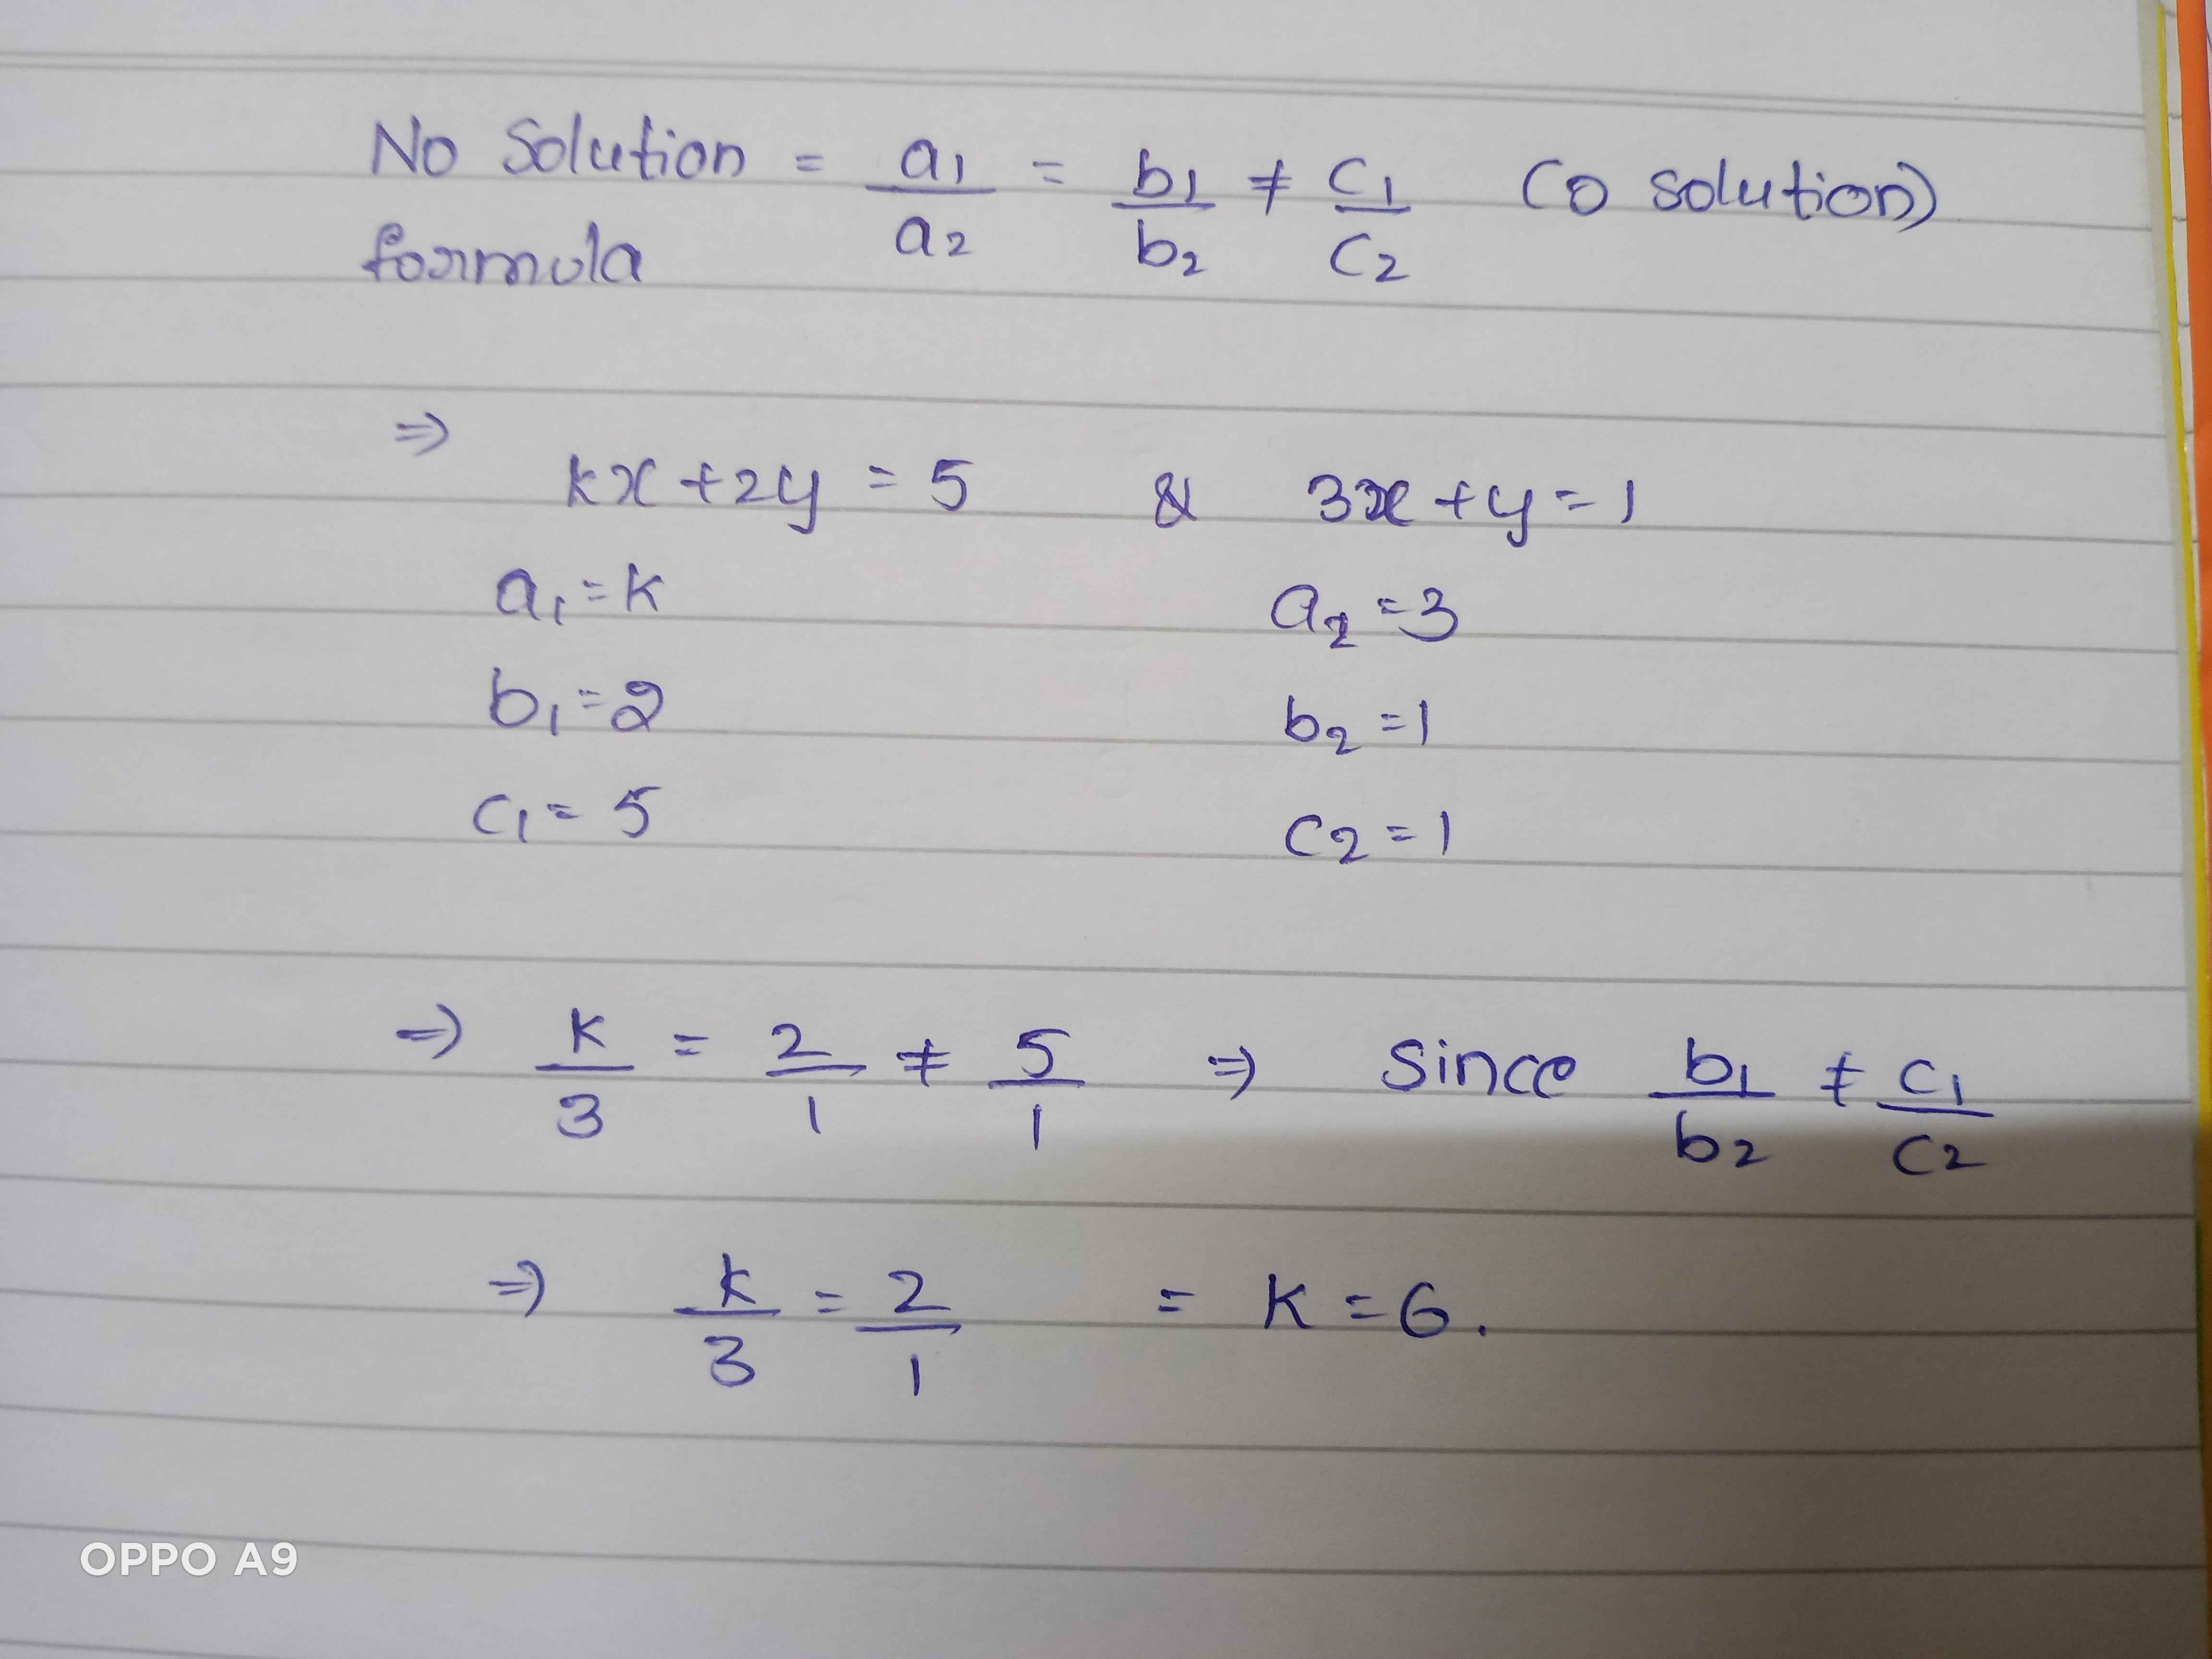 No Solution = a1/a2 = b1/b2 ≠ c1/c2 (0 solution)
formula
⇒
kx + 2y = 5 & 3x + y = 1
a1 = k a2 = 3
b1 = 2 b2 = 1
c1 = 5 c2 = 1
⇒ k/3 = 2/1 ≠ 5/1 ⇒ Since b1/b2 ≠ c1/c2
⇒ k/3 = 2/1 = k = 6.
OPPO A9